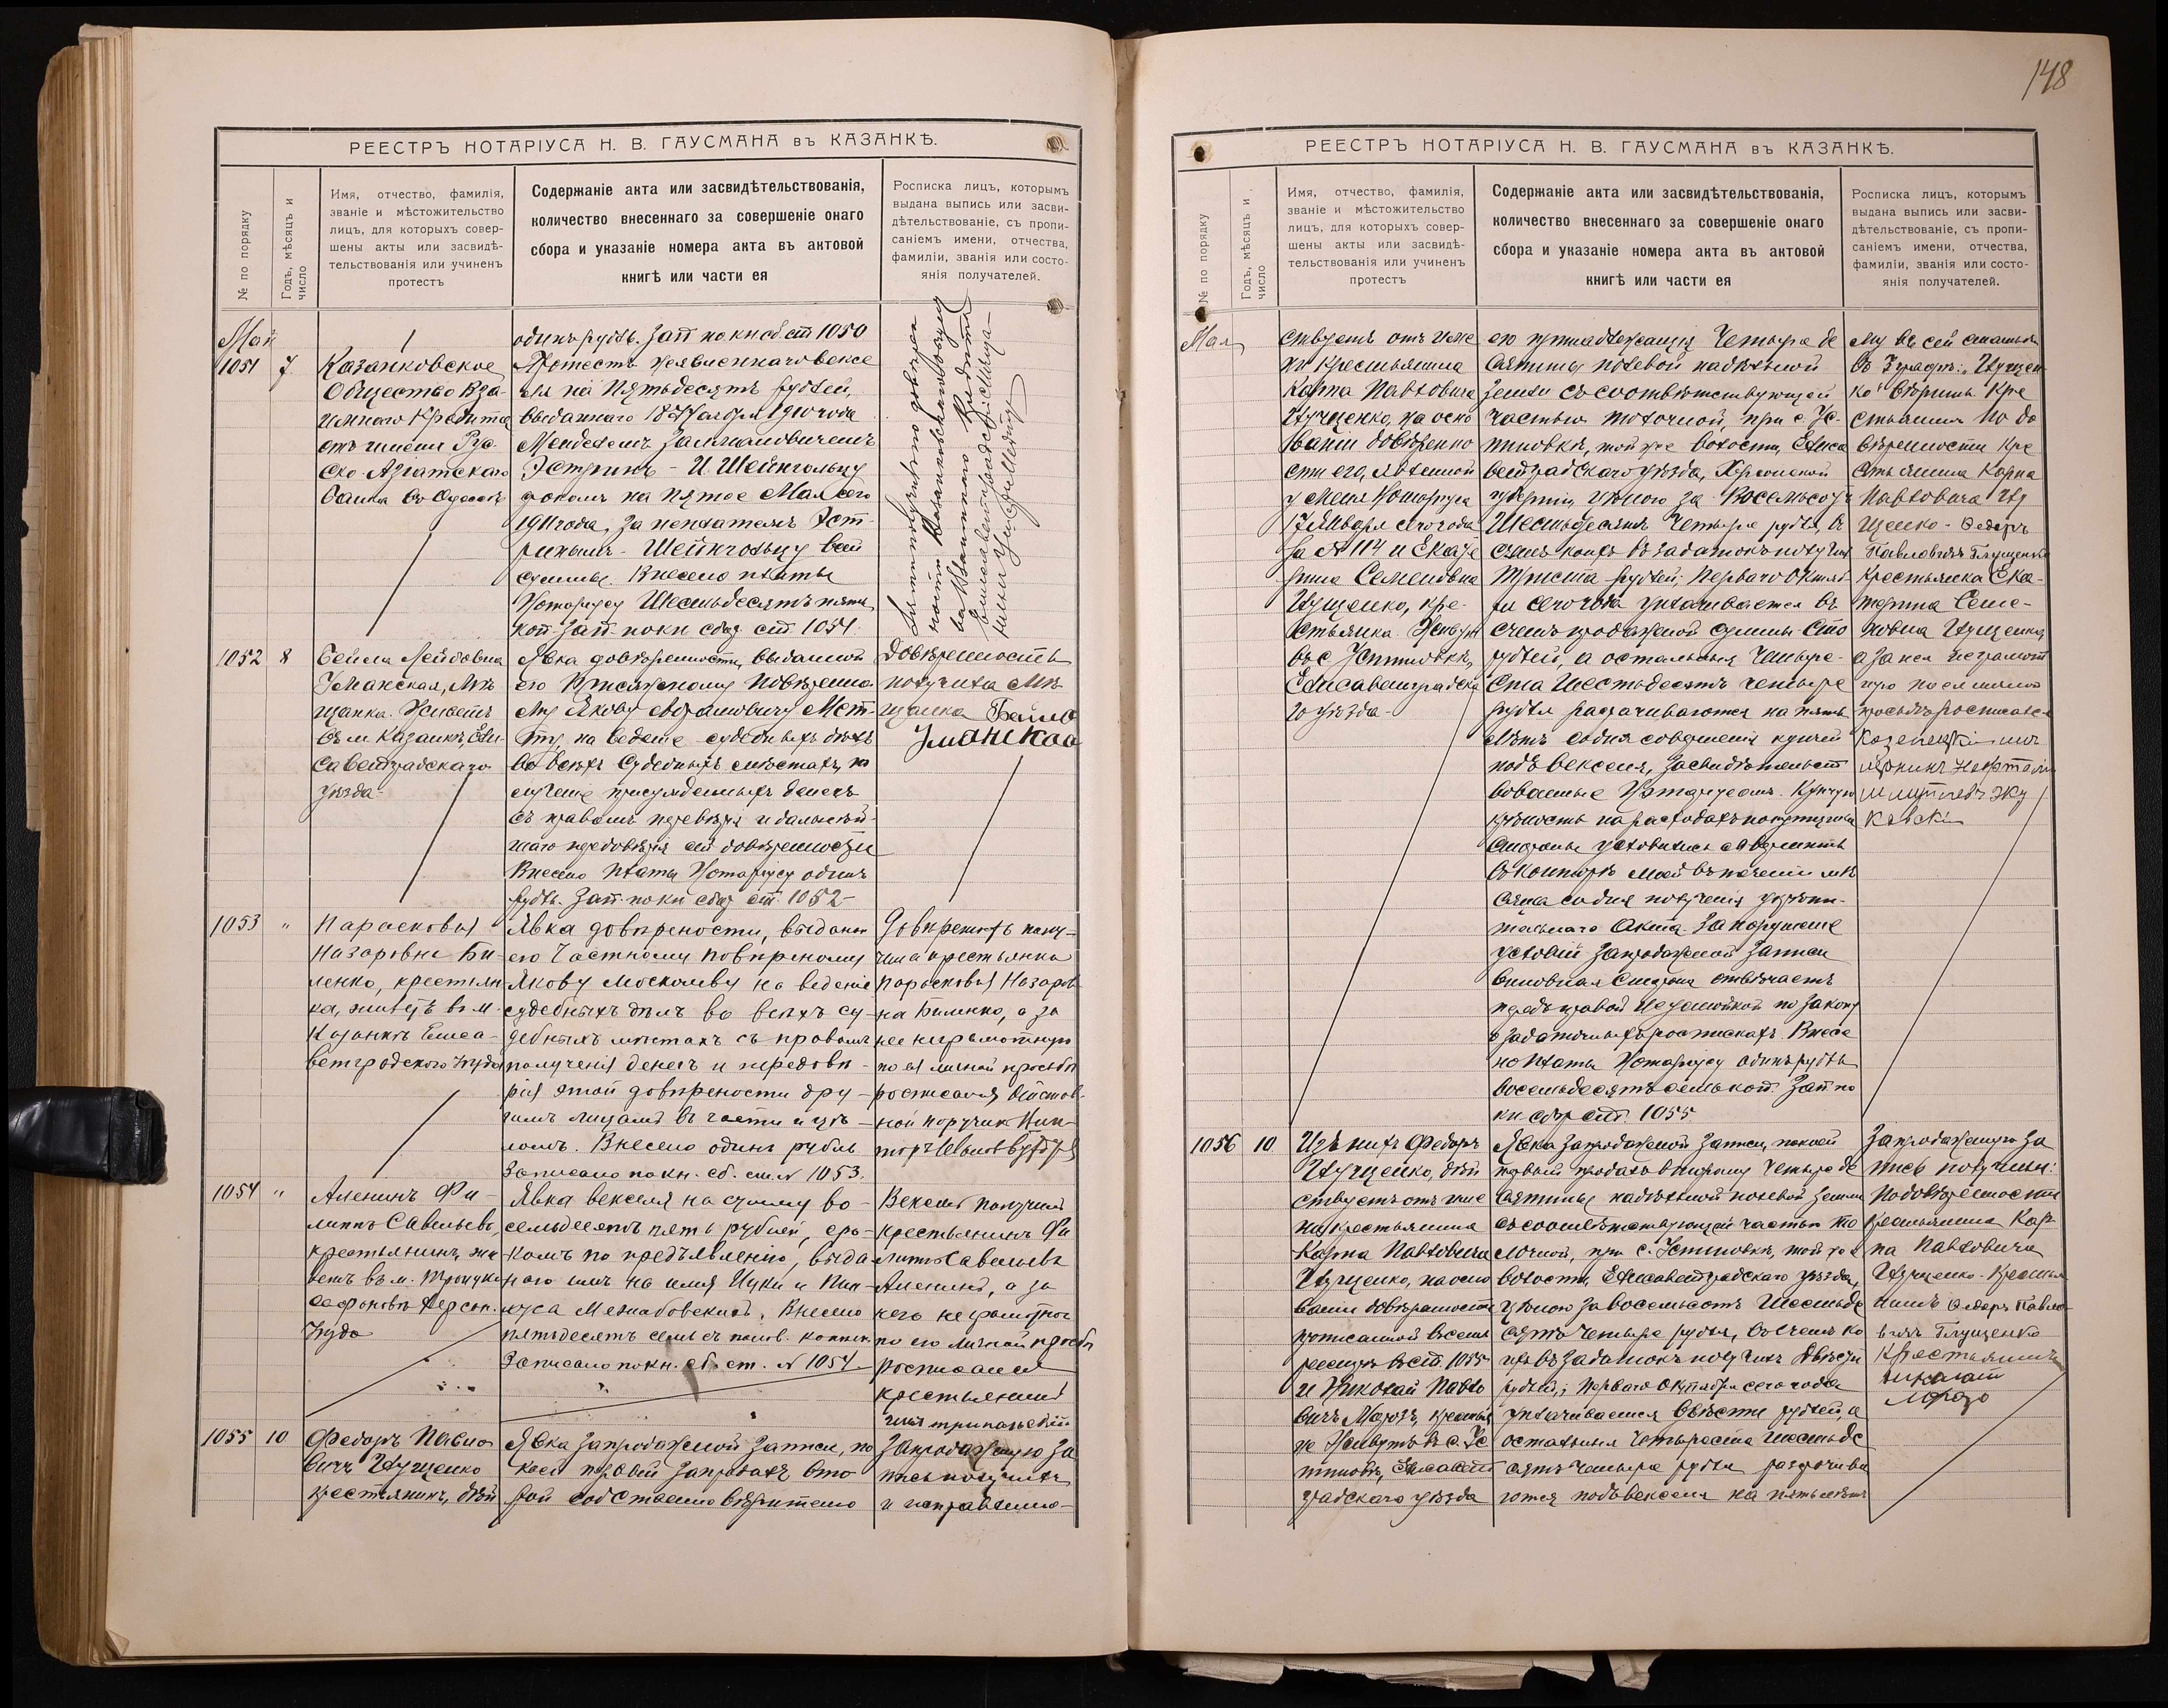 148
РЕЕСТРЪ НОТАРІУСА Н. В. ГАУСМАНА въ КАЗАНКѢ.
№ по порядку
Годъ, мѣсяцъ и
число
Имя, отчество, фамилія,
званіе и мѣстожительство
лицъ, для которыхъ совер-
шены акты или засвидѣ-
тельствованія или учиненъ
протестъ
Содержаніе акта или засвидѣтельствованія,
количество внесеннаго за совершеніе онаго
сбора и указаніе номера акта въ актовой
книгѣ или части ея
Росписка лицъ, которымъ
выдана выпись или засви-
дѣтельствованіе, съ пропи-
саніемъ имени, отчества,
фамиліи, званія или состо-
янія получателей.
Май
одинъ рубль. Зап по кн сб ст 1050
1051 7
Казанковское
Общество Вза-
имнаго Кредита
отъ имени Рус-
ско-Азіатскаго
банка въ Одессѣ
Протестъ
ля на Пятьдесятъ рублей,
выданнаго 18 Ноября 1910 года
Менделемъ Залмановичемъ
Эстринъ - И Шейнгольцу
срокомъ на пятое Мая сего
1911 года, за неплатежъ Эст-
ринымъ - Шейнгольцу всей
суммы. Внесено платы
Нотаріусу Шестьдесятъ пять
коп зап по кн сбор ст 1051.
1052 8
Бейла Лейбовна
Уманская, Мѣ-
щанка. Живетъ
въ м Казанкѣ, Ели-
саветградскаго
уѣзда-
Явка довѣренности, выданной
ею Присяжному Повѣренно-
му Якову Абрамовичу
на веденіе судебныхъ дѣлъ
во всѣхъ судебныхъ мѣстахъ, по-
лученіе присужденныхъ денегъ
съ правомъ передовѣрія и дальнѣй-
шаго передовѣрія сей довѣренности
Внесено платы Нотаріусу одинъ
рубль. Зап по кн сбор ст. 1052-
Довѣренность
получила Мѣ-
щанка Бейла
Уманская
1053 "
Парасковья
Назаровна Би-
ленко, крестьян-
ка, живетъ въ м.
Казанкѣ Елиса-
ветградского Уѣзда
Явка довѣрености, выданой
ею Частному повѣреному
Якову Москалеву на веденіе
судебныхъ дѣлъ во всѣхъ су-
дебныхъ мѣстахъ съ правомъ
полученія денегъ и передовѣ-
рія этой довѣрености дру-
гимъ лицамъ въ части и цѣ-
ломъ. Внесено одинъ рубль
Записано по кн. сб. ст. № 1053.
Довѣреность полу-
чила крестьянка
Парасковья Назаров-
на Биленко, а за
нее неграмотную
по ея личной просьбѣ
росписался
поручикъ
1054 "
Аленинъ Фи-
липпъ Савельевъ,
крестьянинъ, жи-
ветъ въ м.
Херсон.
Уѣзда
Явка векселя на сумму во-
семьдесятъ пять рублей, сро-
комъ по предъявленію, выда-
наго имъ на имя Ицки и Пин-
куса Межибовскихъ. Внесено
пятьдесятъ семь съ полов. копѣек
Записано по кн. сб. ст. № 1054-
Вексель получилъ
крестьянинъ Фи
липъ Савельевъ
Аленинъ, а за
него неграмотнаго
по его личной просьбѣ
росписался
крестьянинъ
1055 10
Федоръ Павло
вичъ Гнущенко
крестьянинъ, дѣй
Явка запродажной записи, по
коей первый запродалъ вто
рой собственно вѣрителю
Запродажную за
пись получилъ
и направлено-
РЕЕСТРЪ НОТАРІУСА Н. В. ГАУСМАНА въ КАЗАНКѢ.
№ по порядку
Годъ, мѣсяцъ и
число
Имя, отчество, фамилія,
званіе и мѣстожительство
лицъ, для которыхъ совер-
шены акты или засвидѣ-
тельствованія или учиненъ
протестъ
Содержаніе акта или засвидѣтельствованія,
количество внесеннаго за совершеніе онаго
сбора и указаніе номера акта въ актовой
книгѣ или части ея
Росписка лицъ, которымъ
выдана выпись или засви-
дѣтельствованіе, съ пропи-
саніемъ имени, отчества,
фамиліи, званія или состо-
янія получателей.
Мая
ствуетъ отъ име
ни крестьянина
Карпа Павловича
на осно
ваніи довѣренно
сти его, явленной
у меня Нотаріуса
17 Января сего года
за № 114 и Екате
рина Семеновна
кре-
стьянка. Живутъ
въ с Устиновкѣ,
Елисаветградска
го уѣзда-
его принадлежащія Четыре де
сятины полевой надѣльной
земли съ соотвѣтствующей
частью толочной, при с Ус-
тиновкѣ, той же волости, Елиса
ветградскаго уѣзда, Херсонской
губерніи, цѣною за Восемьсотъ
Шестьдесятъ Четыре рубля, въ
счетъ коихъ въ задатокъ получилъ
Триста рублей, Перваго Октяб
ря сего года уплачивается въ
счетъ продажной суммы Сто
рублей, а остальныя Четыре-
ста Шестьдесятъ четыре
рубля разсрачиваются на пять
лѣтъ со дня совершенія купчей
подъ векселя, засвидѣтельст
вованные Нотаріусомъ. Купчую
крѣпость на расходахъ покупщика
стороны условились совершить
въ конторѣ моей въ теченіи мѣ
сяца со дня полученія укрѣпи-
тельнаго Акта За нарушеніе
условій запродажной записи
виновная сторона отвѣчаетъ
передъ правой неустойкой по закону
о задаточныхъ роспискахъ. Внесе
но платы Нотаріусу одинъ рубль
восемьдесятъ семь коп. Зап по
кн сбор ст 1055
му въ сей статьѣ
въ
ко Вѣритъ Кре
стьянинъ По до
вѣренности кре
стьянина Карпа
Павловича
- Федоръ
Павловичъ
Крестьянка Ека-
терина Семе-
новна
а за нея неграмот
ную по ея личной
просьбѣ росписался
1056 10
Изъ нихъ Федоръ
дѣй
ствуетъ отъ име
ни крестьянина
Карпа Павловича
на осно
ваніи довѣренности
прописанной въ семъ
реестрѣ въ ст. 1055
и Николай Павло
вичъ Морозъ, крестья
не Живутъ въ с. Ус
тиновкѣ, Елисавет
градскаго уѣзда
Явка запродажной записи, по коей
первый продалъ второму Четыре де
сятины надѣльной полевой земли
съ соотвѣтствующей частью то
лочной, при с. Устиновкѣ, той же
волости, Елисаветградскаго уѣзда,
цѣною за восемьсотъ Шестьде
сятъ Четыре рубля, въ счетъ ко
ихъ въ задатокъ получилъ Двѣсти
рублей; Перваго Октября сего года
уплачивается Двѣсти рублей, а
остальныя Четыреста шестьде
сятъ Четыре рубля разсрочива
ются подъ векселя на пять лѣтъ
Запродажную за
пись получили:
По довѣренности
Крестьянина Кар-
па Павловича
- Крестья
нинъ Федоръ Павло
вичъ
Крестьянинъ
Николай
Мороз